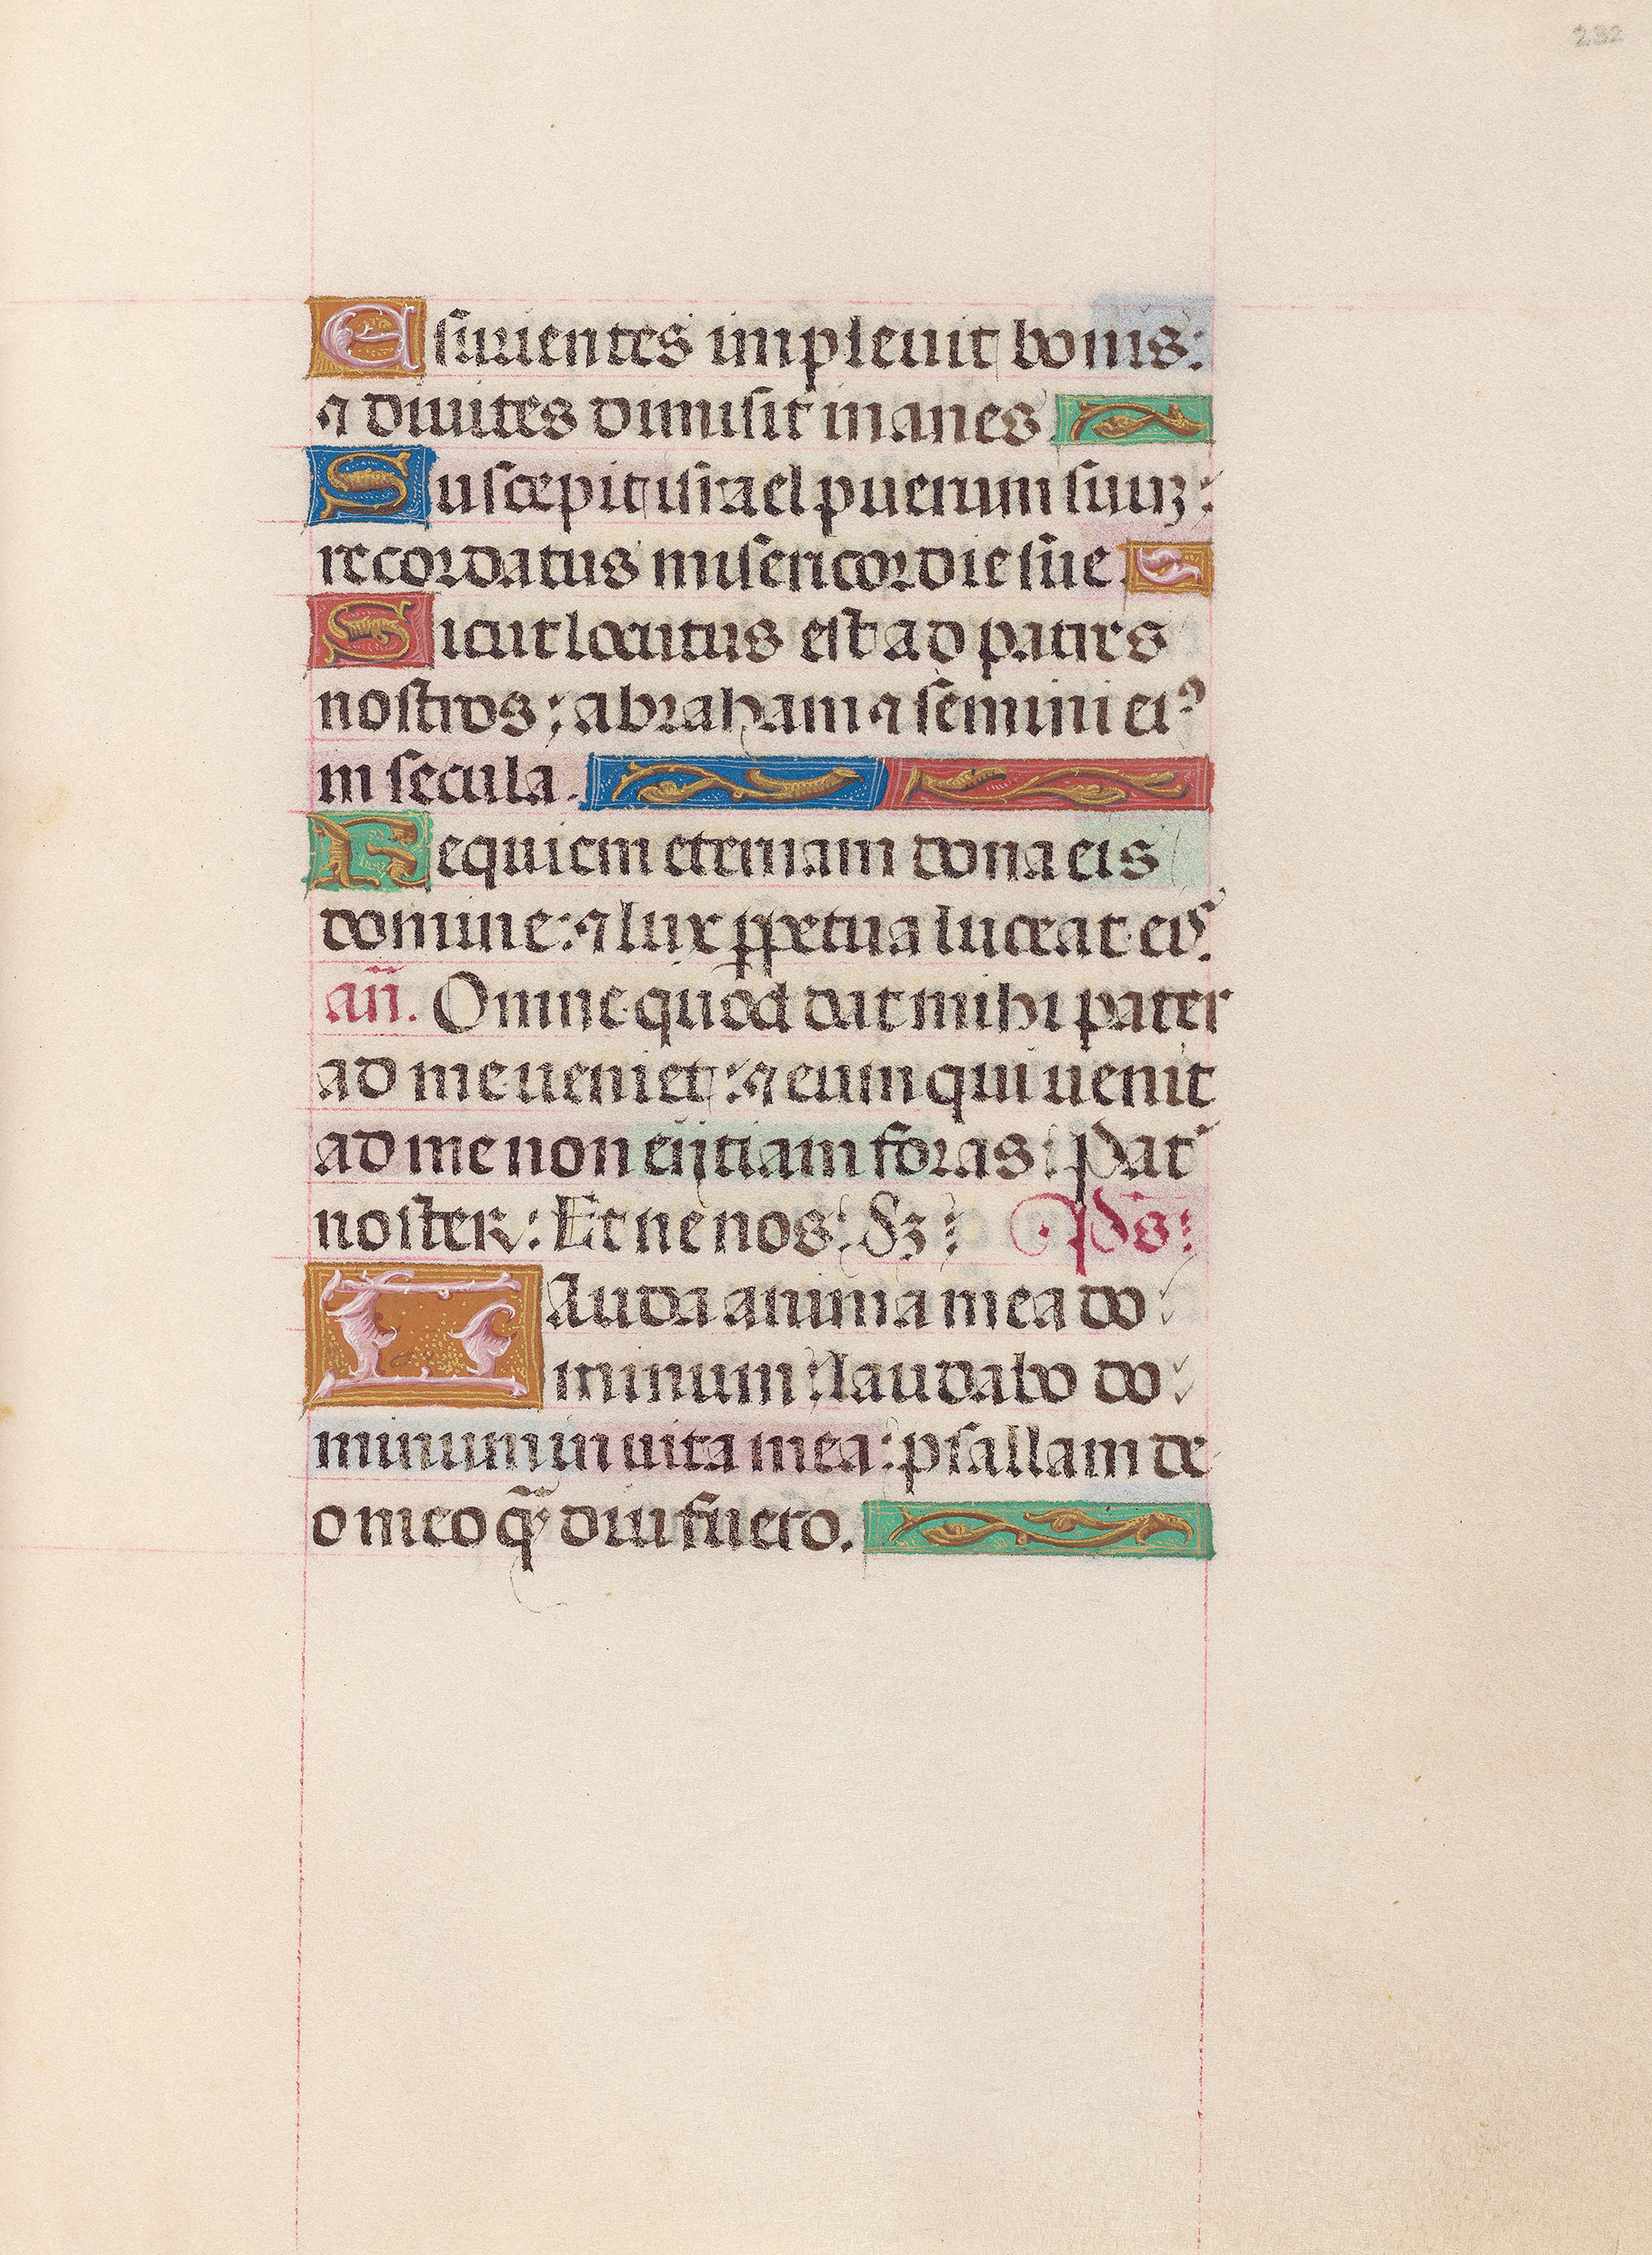 232
Esurientes impleuit bonis:
⁊ diuites dimisit inanes
Suscepit israel puerum suuꝫ:
recordatus misericordie sue.
Sicut locutus est ad patres
nostros: abraham ⁊ semini eiꝰ
in secula.
Requiem eternam dona eis
domine: ⁊ lux ꝑpetua luceat eis.
an̄. Omne quod dat mihi pater
ad me ueniet: ⁊ eum qui uenit
ad me non eijciam foras: Pat̾
noster: Et ne nos: &ꝫ: p̄s:
Lauda anima mea do
minum: laudabo do
minum in uita mea: psallam de
o meo qͣ᷒diu fuero.